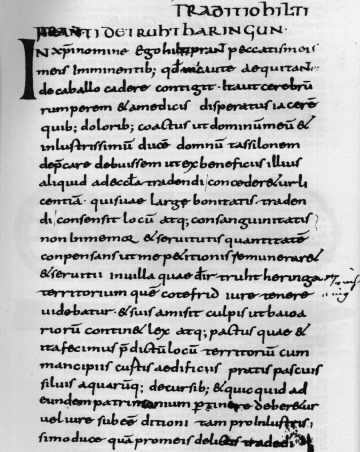 TRADITIO HILTI
PRANTI DE TRUHTHARINGUN
IN XPI nomine ego hiltiprant peccatis meis
meis Imminentib; qđ incaute aequitan
de caballo cadere contigit Ita ut cerebrũ
rumperem & amedicis disperatus iacerẽ
quib; dolorib; coactus ut dominũ meũ &
inlustrissimũ ducẽ domnũ tassilonem
dep̃care debuissem ut ex beneficiis illius
aliquid ad eccl̃a tradendi conceder& ur li
centiã quisuae large bonitatis traden
di consensit locũ atq; consanguinitatis
non Inmemor & servitutis quantitatẽ
conpensans ut me petitionis remunerar&
& servitii In villa quae dr̃ truhtheringa
territorium quẽ cotefrid iure tenere
videbatur & suis amisit culpis ut baioa
riorũ contin& lex atq; pactus quae &
ita fecimus p̃dictũ locũ territoriũ cum
mancipiis cuftis aedificiis pratis pascuis
silvis aquarũq; decursib; & quicquid ad
eundem patrimonium p̱tinere deber&ur
vel iure subeẽ ditioni tam pro Inlustris
simo duce quã pro meis delictis tradedi